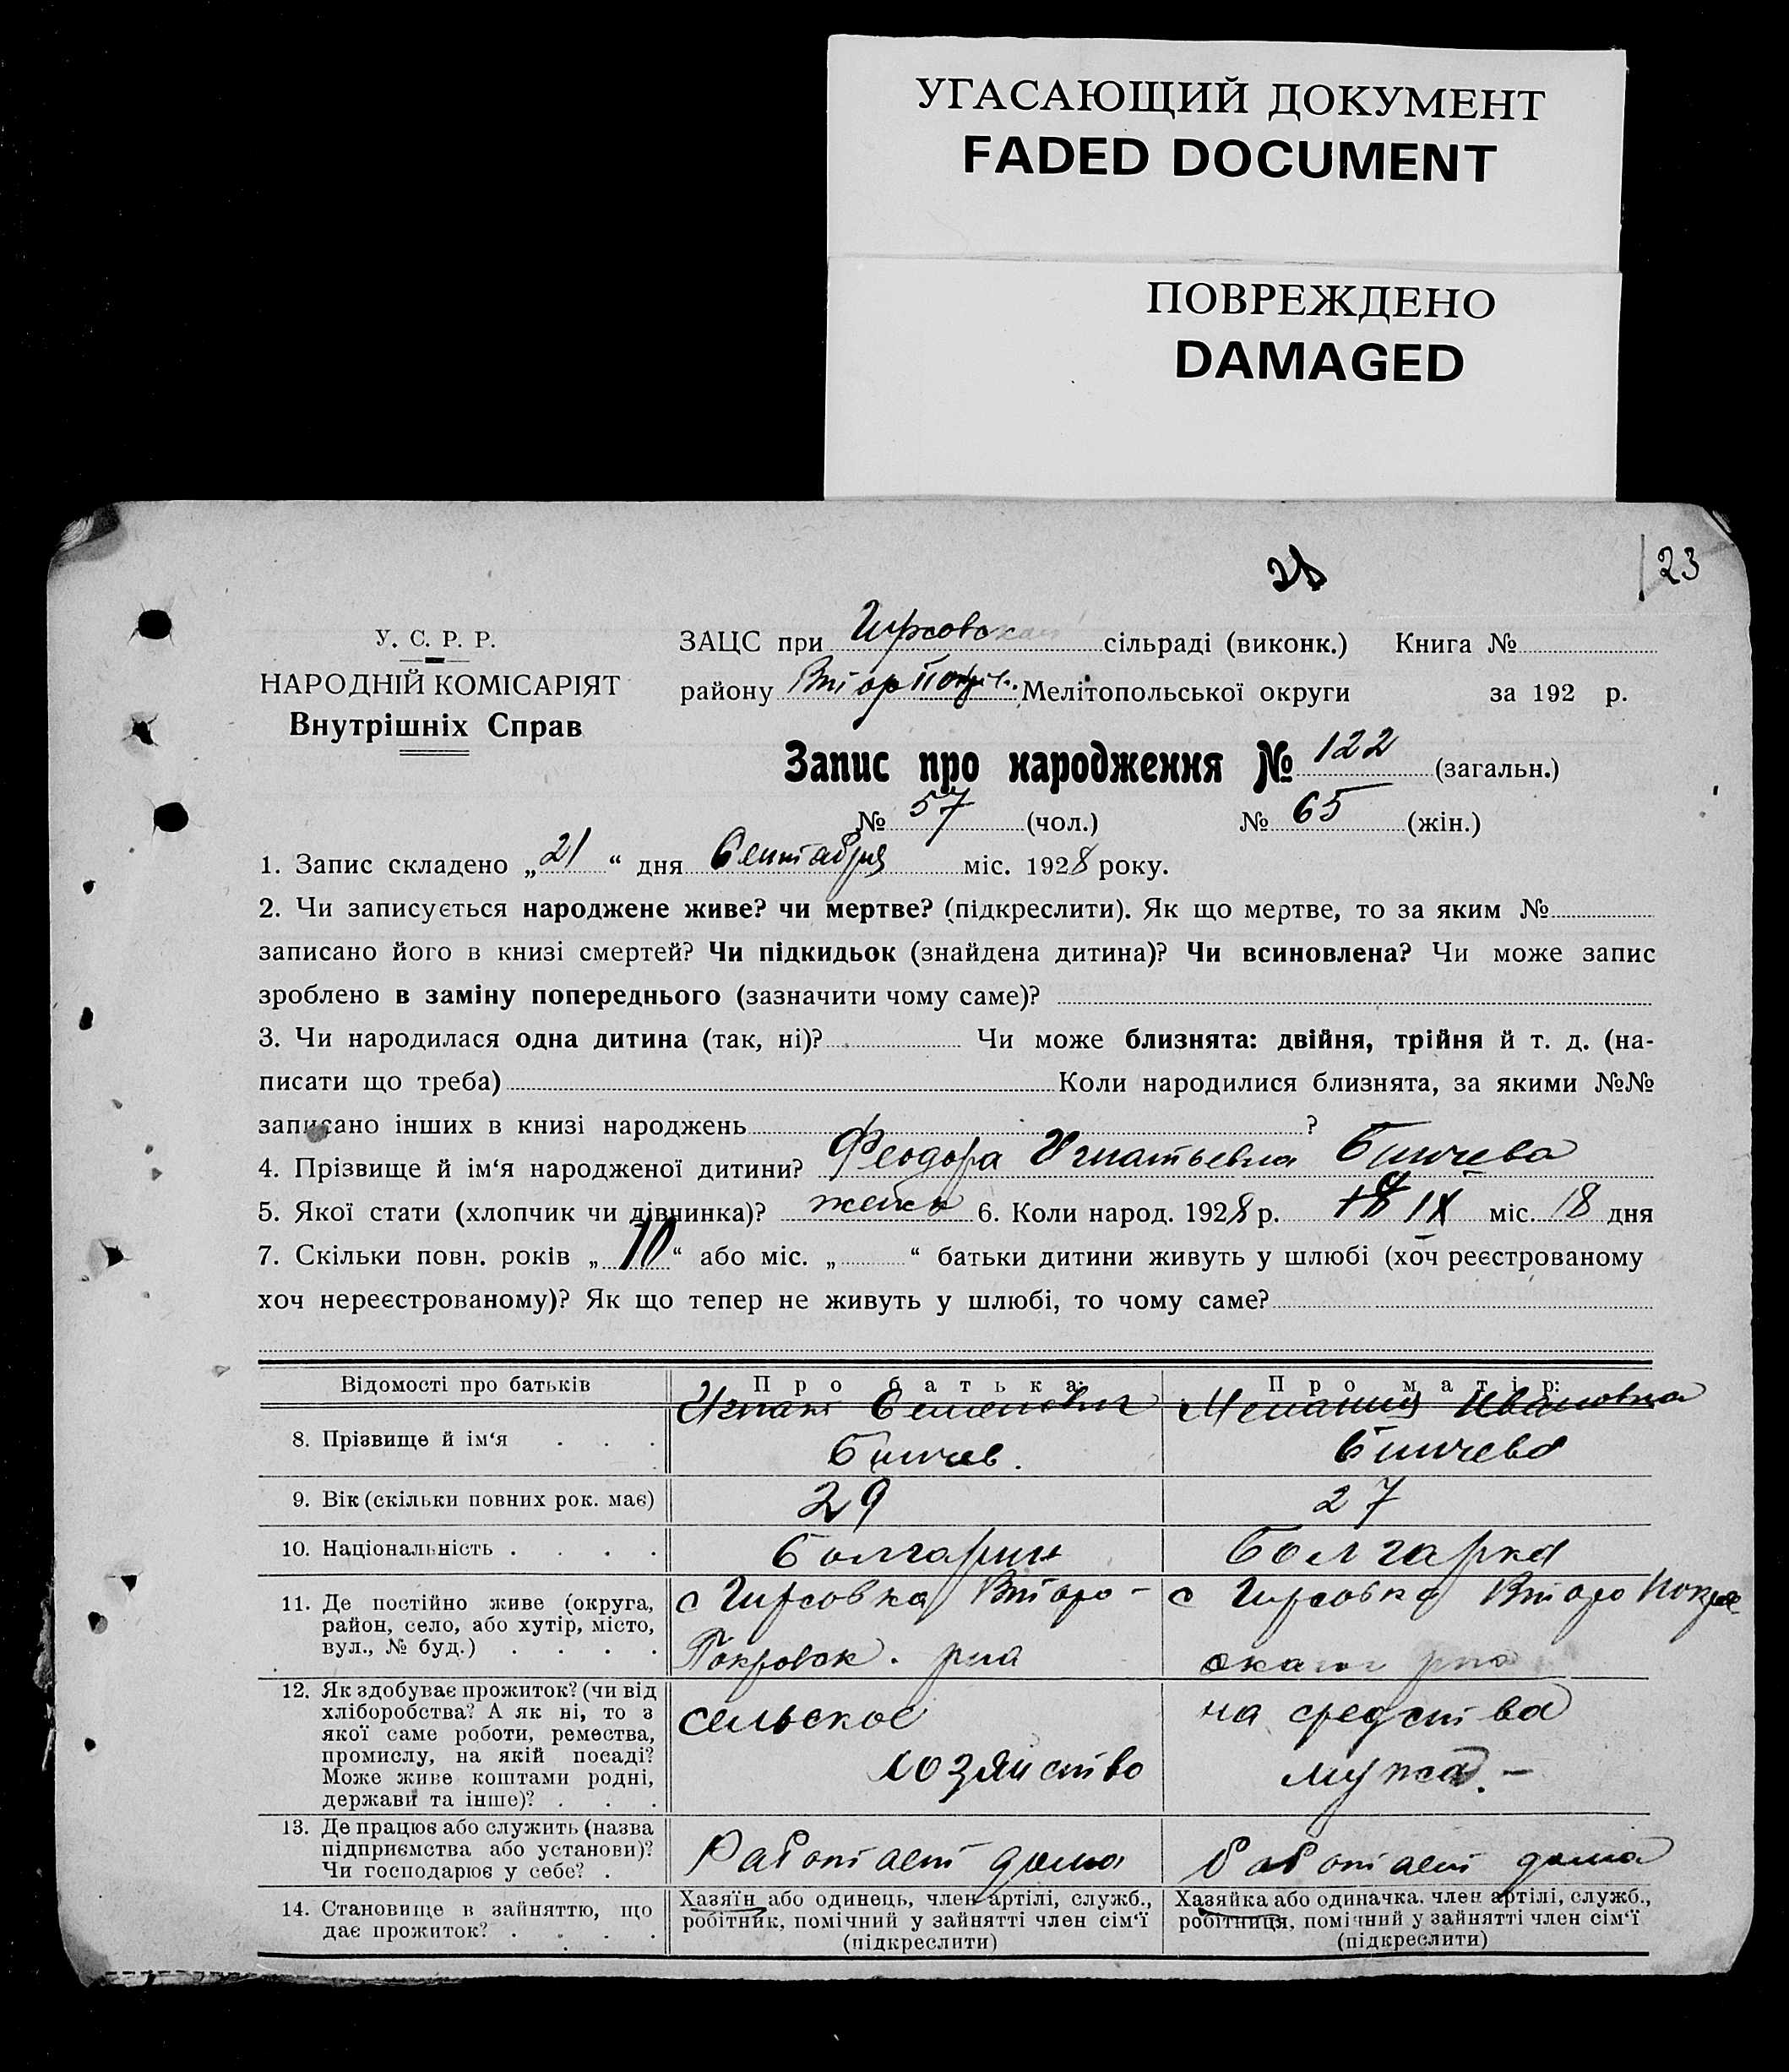 УГАСАЮЩИЙ ДОКУМЕНТ
FADED DOCUMENT
ПОВРЕЖДЕНО
DAMAGED
23
У. С. Р. Р.
НАРОДНІЙ КОМІСАРІЯТ
Внутрішніх Справ
ЗАЦС при Гирсовском сільраді (виконк.) Книга №
району ВторПокров. Мелітопольської округи за 192 р.
Запис про народження № 122 (загальн.)
№ 57 (чол.) № 65 (жін.)
1. Запис складено „ 21 “ дня Сентября міс. 1928 року.
2. Чи записується народжене живе? чи мертве? (підкреслити). Як що мертве, то за яким №
записано його в книзі смертей? Чи підкидьок (знайдена дитина)? Чи всиновлена? Чи може запис
зроблено в заміну попереднього (зазначити чому саме)?
3. Чи народилася одна дитина (так, ні)? Чи може близнята: двійня, трійня й т. д. (на-
писати що треба) Коли народилися близнята, за якими №№
записано інших в книзі народжень ?
4. Прізвище й ім‘я народженої дитини? Феодора Игнатьевна Бинчева
5. Якої стати (хлопчик чи дівчинка)? женск 6. Коли народ. 1928 р. IX міс. 18 дня
7. Скільки повн. років „ 10 “ або міс. „ “ батьки дитини живуть у шлюбі (хоч реєстрованому
хоч нереєстрованому)? Як що тепер не живуть у шлюбі, то чому саме?
Відомості про батьків
Про батька:
Про матір:
8. Прізвище й ім‘я
Игнат Семенович
Бинчев.
Мелания Ивановна
Бинчева
9. Вік (скільки повних рок. має)
29
27
10. Національність
болгарин
болгарка
11. Де постійно живе (округа,
район, село, або хутір, місто,
вул., № буд.)
с Гирсовка Второ-
Покровск. рна
с Гирсовка Второ Покров
ского рна
12. Як здобуває прожиток? (чи від
хліборобства? А як ні, то з
якої саме роботи, ремества,
промислу, на якій посаді?
Може живе коштами родні,
держави та інше)?
сельское
хозяйство
на средства
мужа. -
13. Де працює або служить (назва
підприємства або установи)?
Чи господарює у себе?
Работает дома
работает дома
14. Становище в зайняттю, що
дає прожиток?
Хазяїн або одинець, член артілі, служб.,
робітник, помічний у зайнятті член сім‘ї
(підкреслити)
Хазяйка або одиначка. член артілі, служб.,
робітниця, помічний у зайнятті член сім‘ї
(підкреслити)